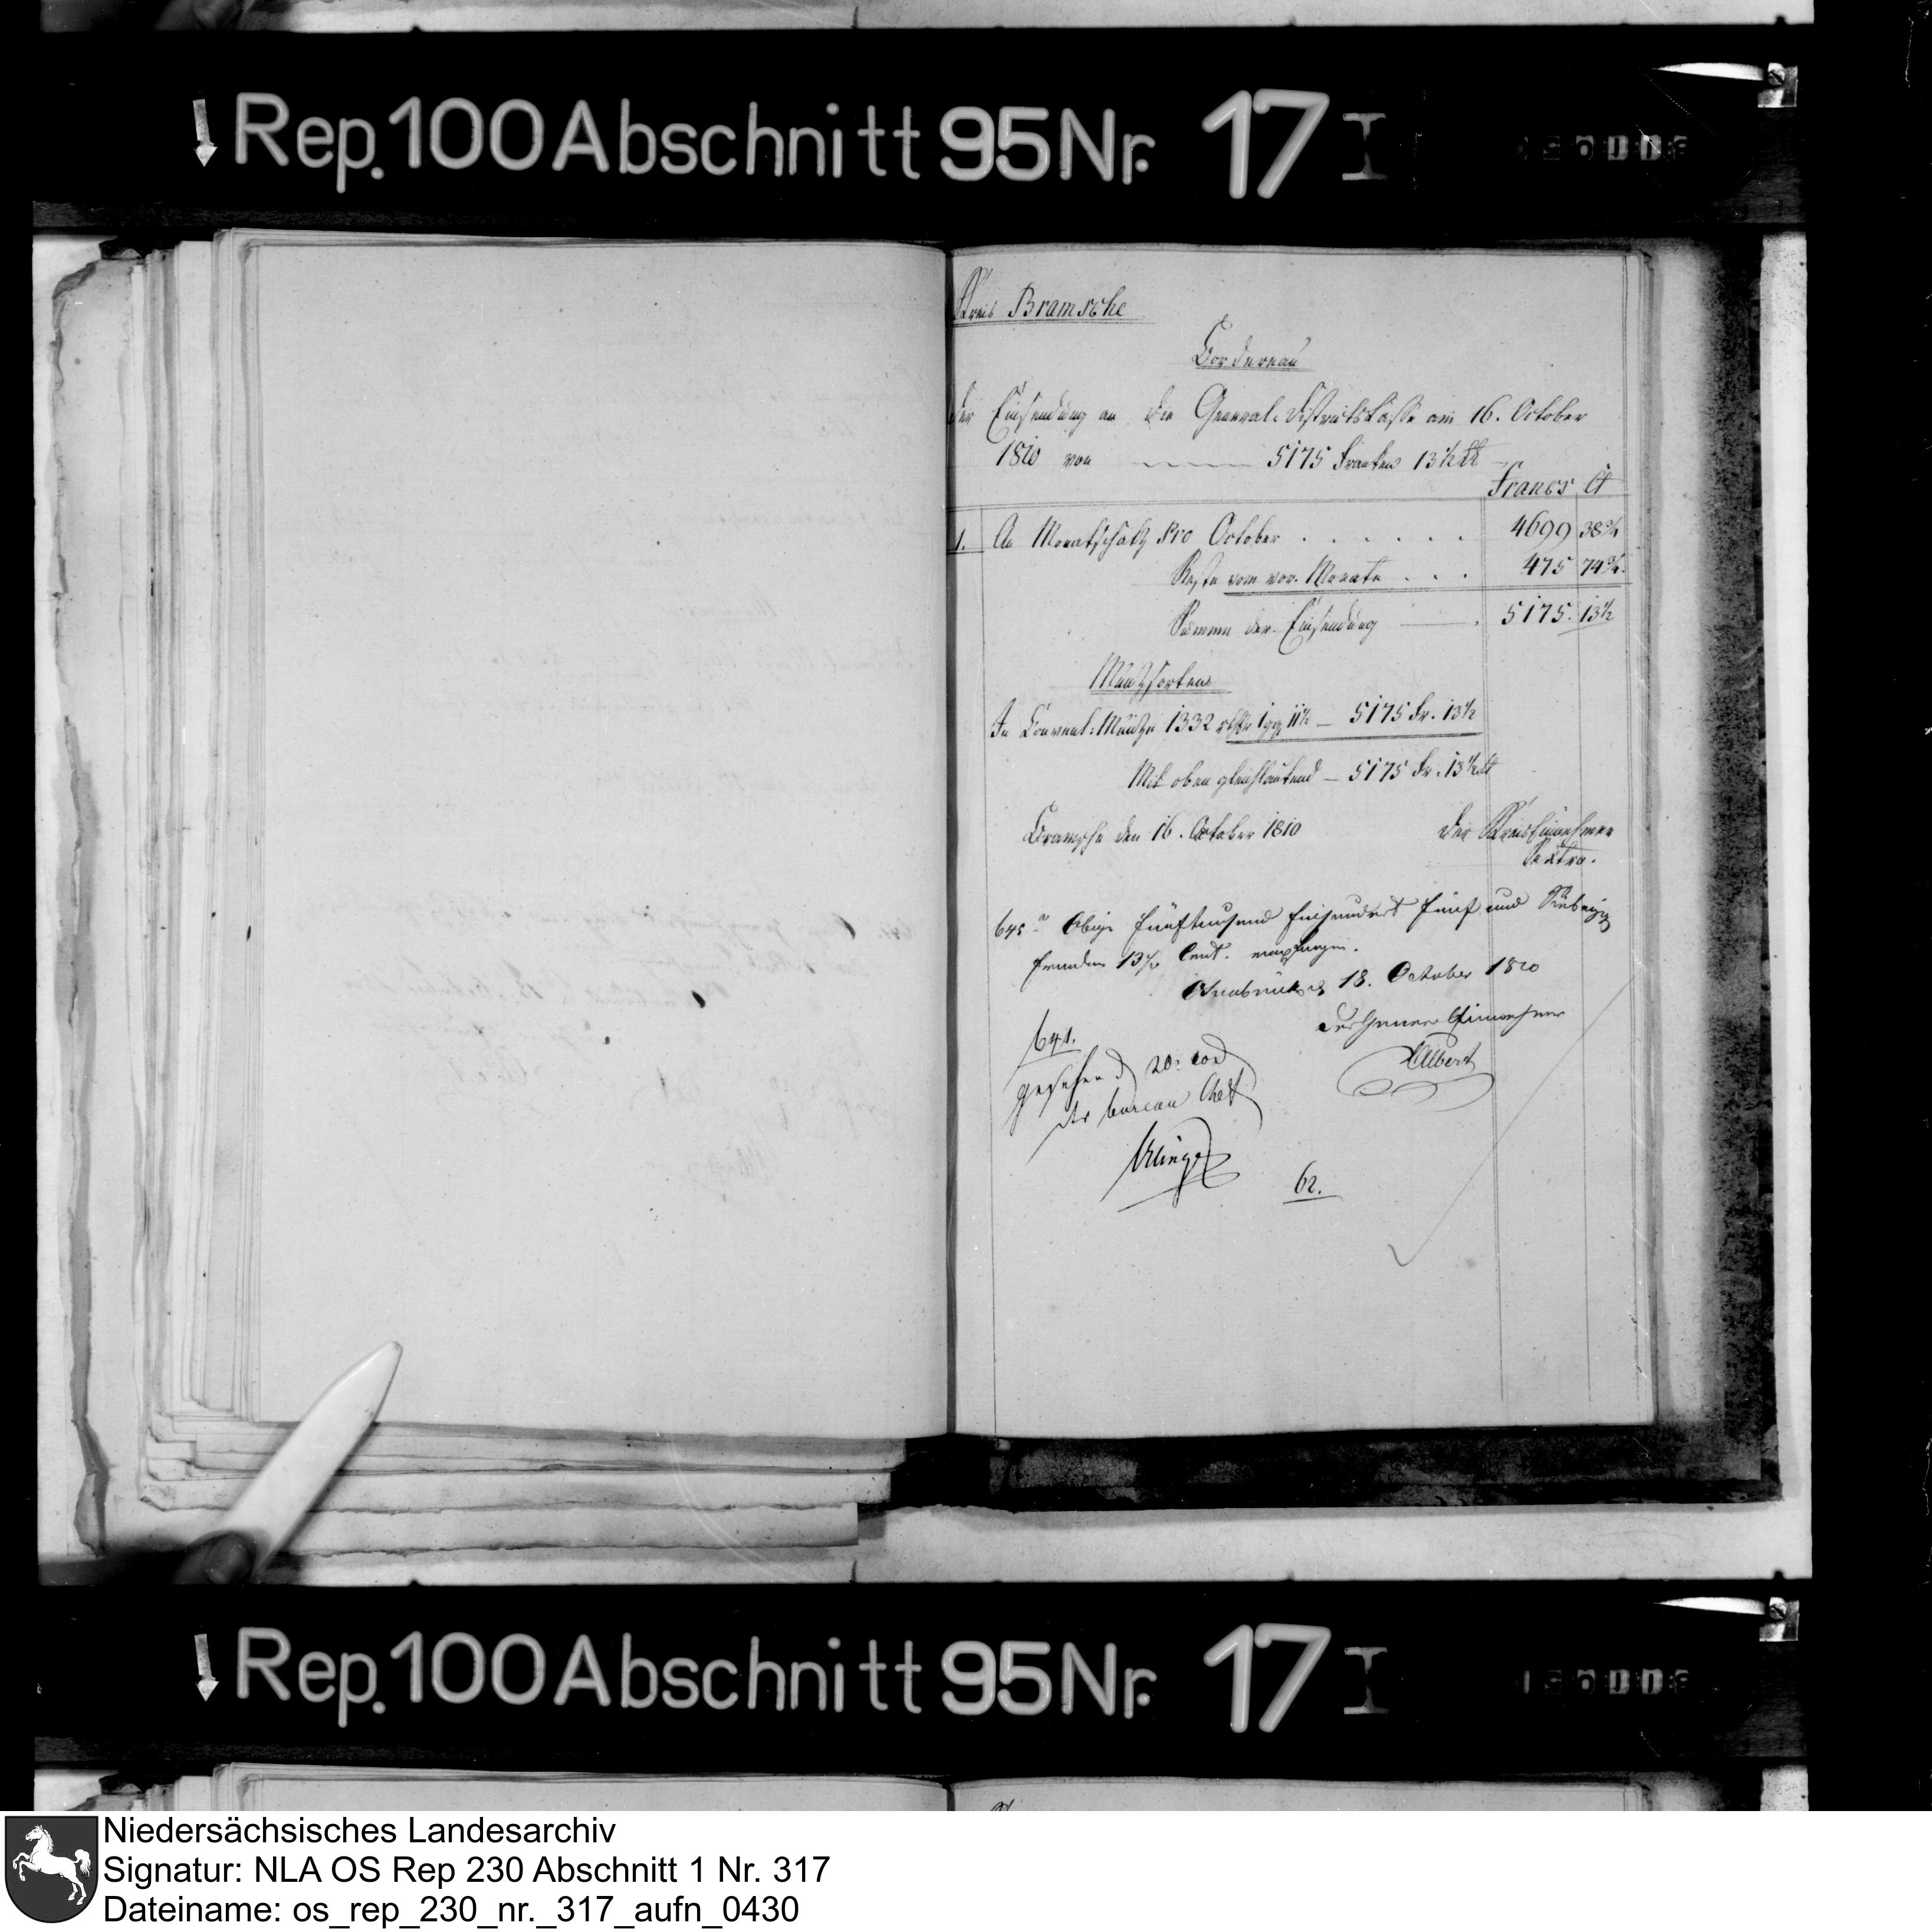 Rep. 100 Abschnitt 95 Nr. 17 I
Kreis Bramsche
Bordereau
der Einsendung an die General-Districtskasse am 16. October
1810 von 5175 Franken 13 1/2 Ct
Francs Ct
1. An Monatschatz pro October . . . . . . 4699 38 3/4
Reste vom vor. Monate . . . 475 74 3/4
Summa der Einsendung 5175. 13 1/2
Müntzsorten
In Convent: Müntze 1332 rthlr 1 ggr 11 1/2 — 5175 Fr. 13 1/2
Mit oben gleichlautend — 5175 Fr. 13 1/2 Ct
Bramsche den 16. October 1810 Der Kreiseinnehmer
Obige fünftausend einhundert fünf und Siebenzig
Franken 13 1/2 Cent. empfangen.
Osnabrück d 18. October 1810
Der General Einnehmer
Albert
641.
gesehen d 20. eod
der bureau Chef
62.
Rep. 100 Abschnitt 95 Nr. 17 I
Niedersächsisches Landesarchiv
Signatur: NLA OS Rep 230 Abschnitt 1 Nr. 317
Dateiname: os_rep_230_nr._317_aufn_0430